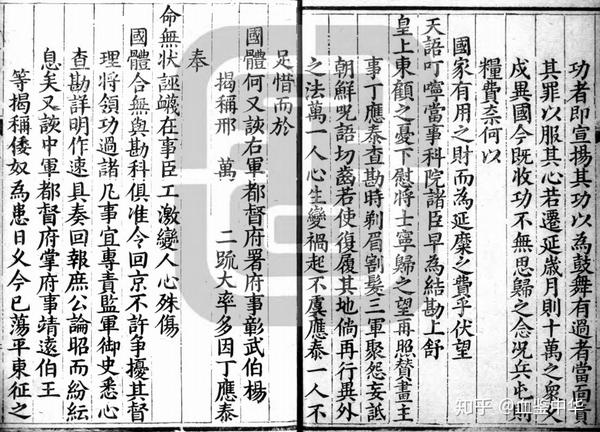 功者即宣揚其功以為鼓舞有過者當面責
其罪以服其心若遷延歲月則十萬之衆久
戍異國今既收功不無思歸之念況兵屯則
糧費柰何以
國家有用之財而為延糜之費乎伏望
天語叮嚀當事科院諸臣早為結勘上舒
皇上東顧之憂下慰將士寧歸之望再照贊畫主
事丁應泰查勘時剃眉割髮三軍聚怨妄詆
朝鮮呪詛切齒若使復履其地倘再行異外
之法萬一人心生變禍起不虞應泰一人不
足惜而於
國體何又該右軍都督府署府事彰武伯楊
揭稱邢 萬 二䟽大率多因丁應泰
奉
命無狀誣衊在事臣工激變人心殊傷
國體合無與勘科俱准令回京不許爭擾其督
理將領功過諸凡事宜專責監軍御史悉心
查勘詳明作速具奏回報庶公論昭而紛紜
息矣又該中軍都督府掌府事靖遠伯王
等揭稱倭奴為患日久今已蕩平東征之
知乎 @血鉴中华